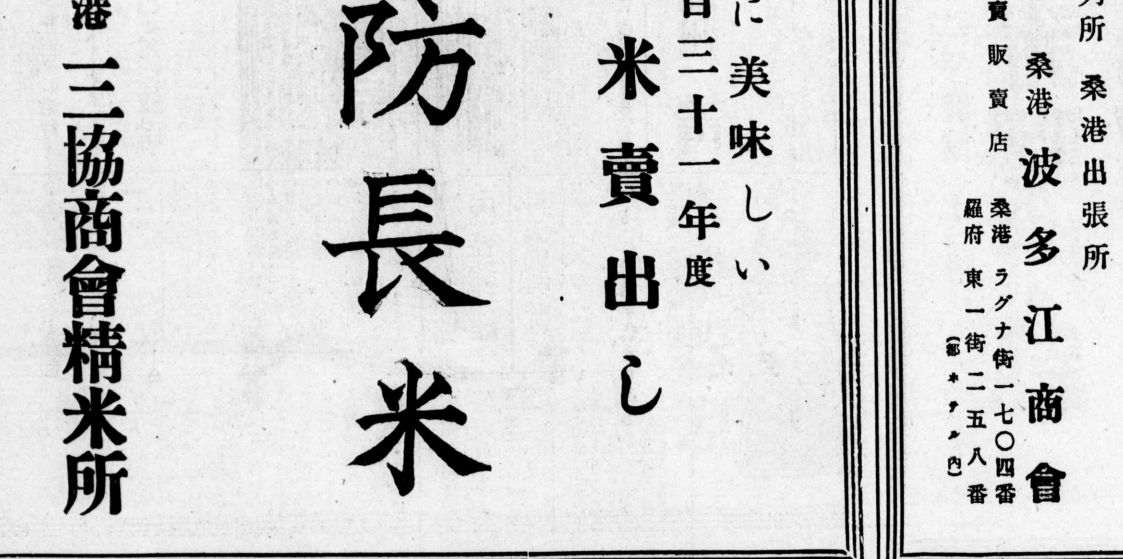 所 桑港出張所
桑港 波多江商會
賣販賣店
桑港 ラグナ街一七〇四番
羅府 東一街二五八番
(都ホテル内)
に美味しい
三十一年度
米賣出し
防長米
港 三協商會精米所